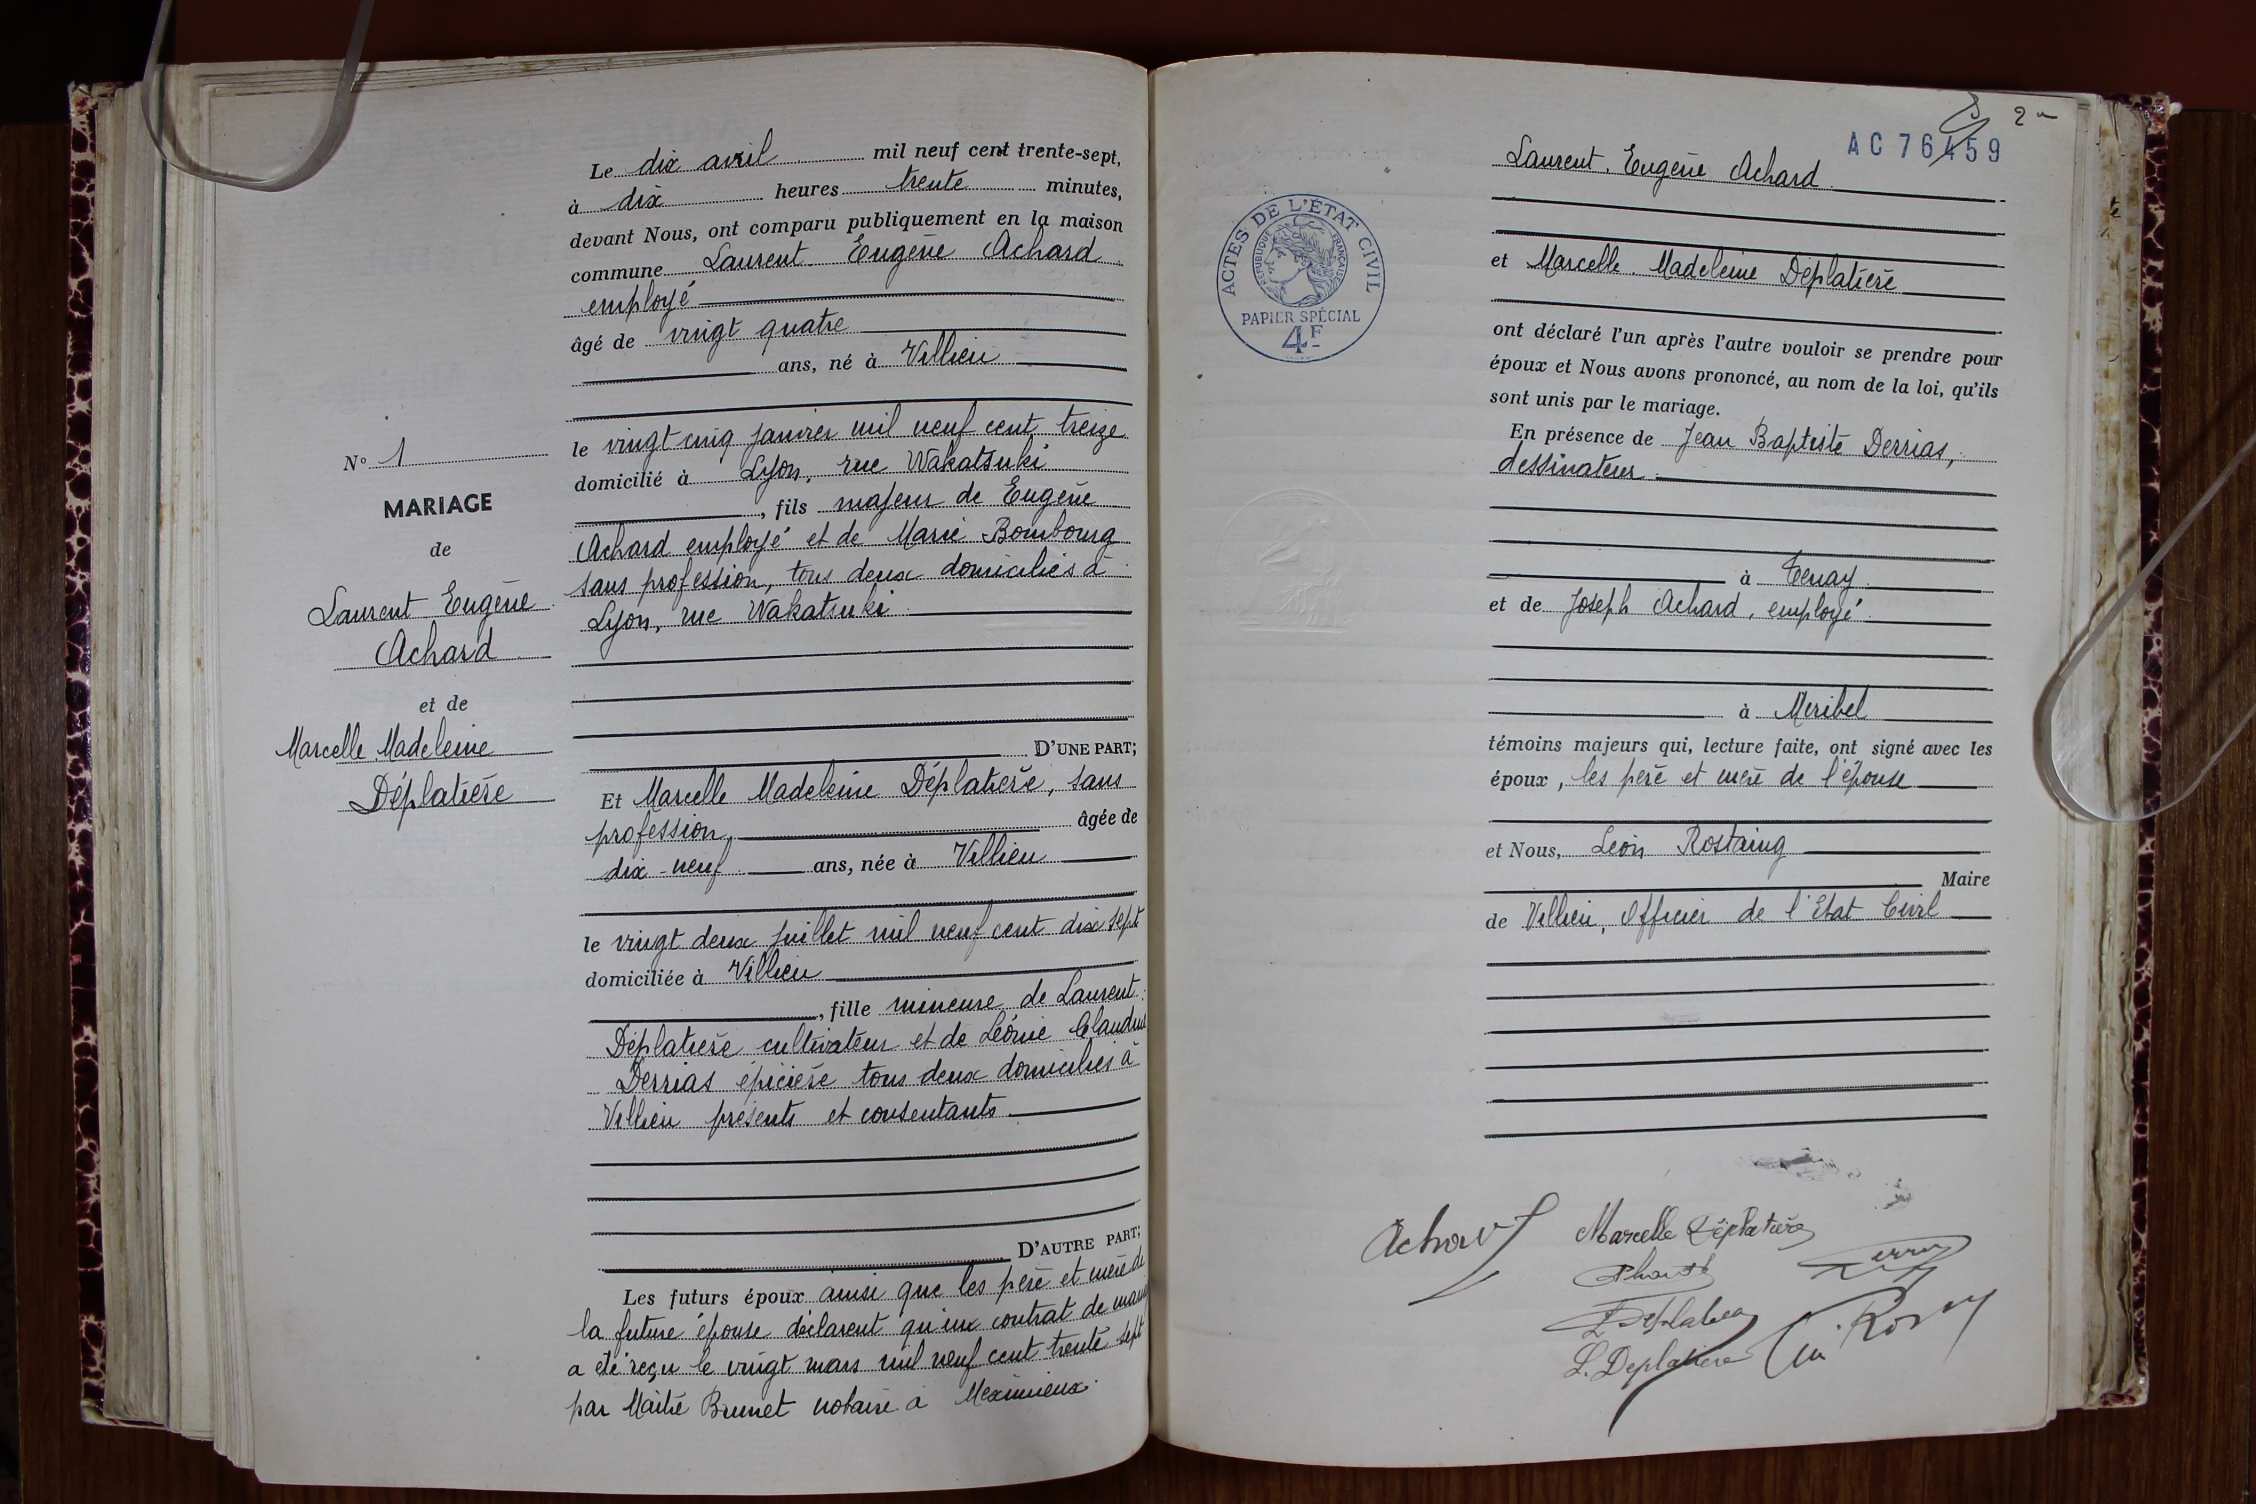 N° 1
MARIAGE
de
Laurent Eugène
Achard
et de
Marcelle Madeleine
Déplatière
Le dix avril mil neuf cent trente-sept,
à dix heures trente minutes,
devant Nous, ont comparu publiquement en la maison
commune Laurent Eugène Achard
employé
âgé de vingt quatre
ans, né à Villieu
le vingt cinq janvier mil neuf cent treize
domicilié à Lyon, rue Wakatsuki
, fils majeur de Eugène
Achard employé et de Marie Bombourg
sans profession, tous deux domiciliés à
Lyon, rue Wakatsuki
D'UNE PART;
Et Marcelle Madeleine Déplatière, sans
profession, âgée de
dix-neuf ans, née à Villieu
le vingt deux juillet mil neuf cent dix sept
domiciliée à Villieu
, fille mineure de Laurent
Déplatière cultivateur et de Léonie Claudia
Derrias épicière tous deux domiciliés à
Villieu présents et consentants
D'AUTRE PART;
Les futurs époux ainsi que les père et mère de
la future épouse déclarent qu'un contrat de
a été reçu le vingt mars mil neuf cent trente sept
par Maître Brunet notaire à Meximieux.
2
AC 76459
Laurent Eugène Achard
et Marcelle Madeleine Déplatière
ACTES DE L'ÉTAT CIVIL
RÉPUBLIQUE FRANÇAISE
PAPIER SPÉCIAL
4F
ont déclaré l'un après l'autre vouloir se prendre pour
époux et Nous avons prononcé, au nom de la loi, qu'ils
sont unis par le mariage.
En présence de Jean Baptiste Derrias,
dessinateur
à Tenay
et de Joseph Achard, employé
à Miribel
témoins majeurs qui, lecture faite, ont signé avec les
époux, les père et mère de l'épouse
et Nous, Léon Rostaing
Maire
de Villieu, Officier de l'Etat Civil
Achard
Marcelle Déplatière
L. Deplatière